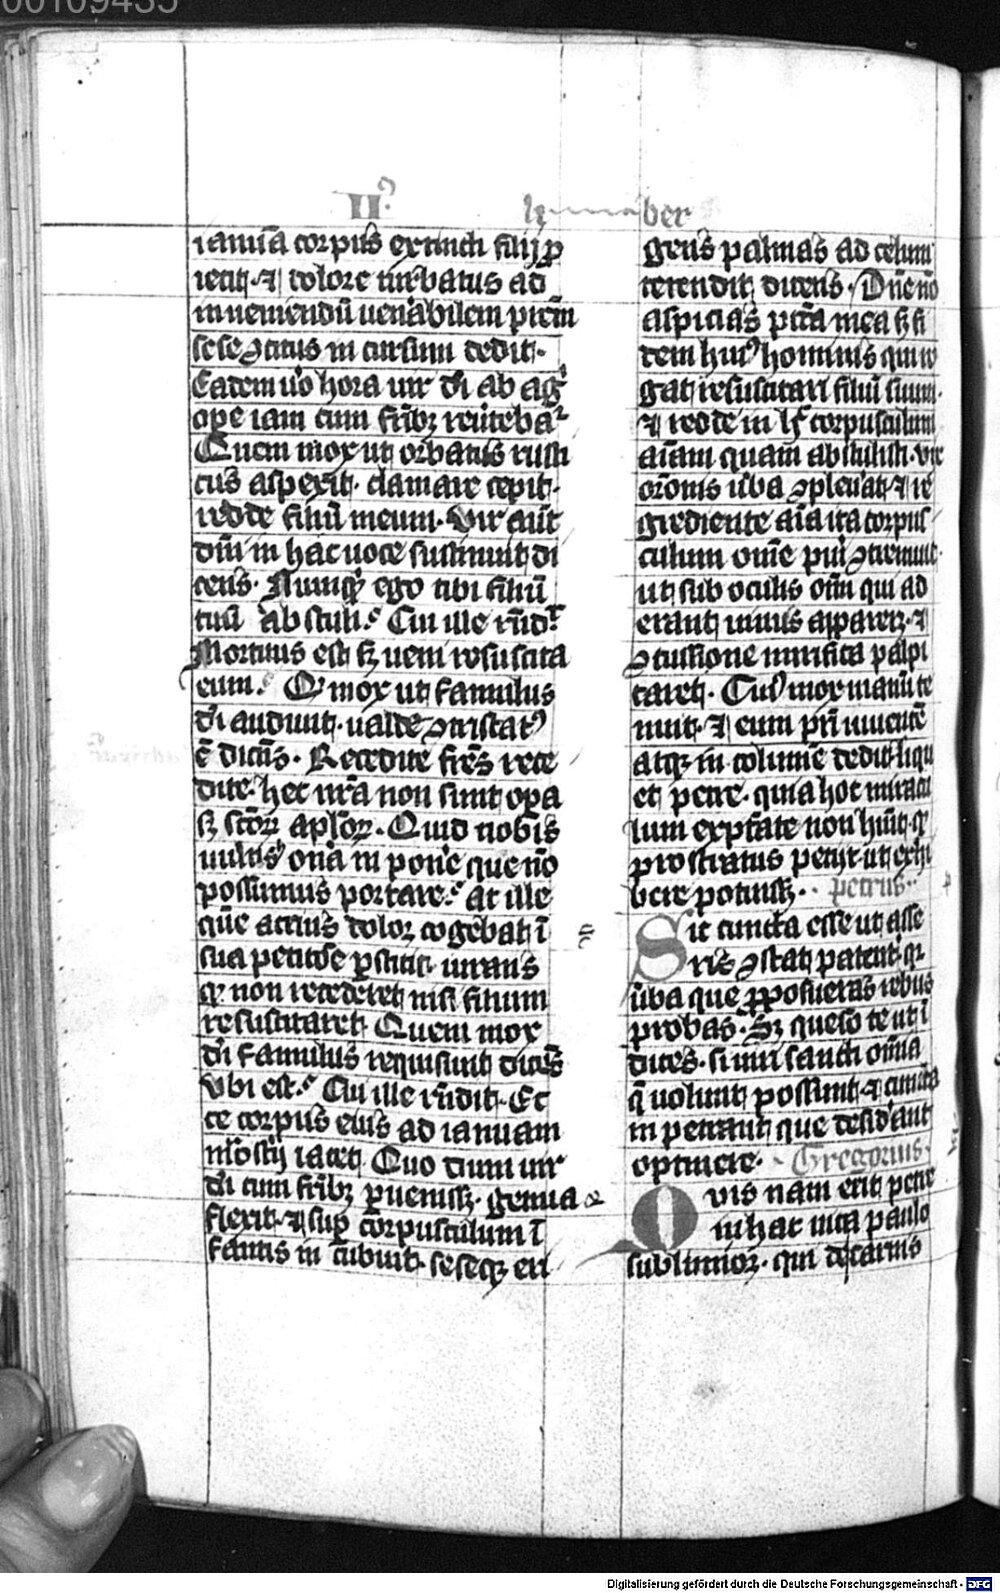 00109435
II⁹
ber
ianuā corpus extincti filij ꝓ
iecit · ⁊ dolore turbatus ad
inueniendū uenabilem patrē
sese ꝯcitus in cursum dedit ·
Eadem uo hora uir dī ab agͥ
ope iam cum frībꝫ reūteba
Quem mox ut orbatus rusti
cus aspexit · clamare cepit ·
redde filiū meum · Vir aūt
dm̄ in hac uoce sustinuit di
cens · Nunqͥ ego tibi filiū
tuū abstuli · Cui ille rn̄dt
Mortuus est sꝫ ueni resuscita
eum · Qͦ mox ut famulus
dī audiuit · ualde ꝯtristatꝰ
ē dicēs · Recedite fr̄es rece
dite · hec nr̄a non sunt opa
sꝫ scōrꝝ aplo̅rꝝ · Quid nobis
uultis on̄a inponere que nō
possumus portare · At ille
quē acrius dolor cogebat ī
sua petitōe ꝑstitit · iurans
qͥ non recederet nisi filium
resuscitaret Quem mox
dī famulus requisiuit dicēs
Vbi est · Cui ille rn̄dit · Ec
ce corpus eius ad ianuam
mōstij iacet · Quo dum uir
dī cum frībꝫ ꝑuenissꝫ · genua
flexit · ⁊ suꝑ corpusculum ī
fantis incubuit · seseqꝫ eri
gens palmas ad celum
tetendit dicens · Dn̄e nō
aspicias pctā mea sꝫ fi
dem huiꝰ hominis qui ro
gat resuscitari filiū suum ·
⁊ redde in hͦ corpusculum
aīam quam abstulisti · vix
orōnis ūba ꝯpleuat · ⁊ re
grediente aīa ita corpus
culum om̄e pui ꝯtremuit ·
ut sub oculis om̄i qui ad
erant uiuus apparet · ⁊
ꝯcussione mirifica palpi
taret · Cuiꝰ mox manū te
nuit · ⁊ eum pr̄i uiuentē
atqꝫ incolumē dedit · liqu
et petre · quia hoc miracu
lum exptāte non hūit · qͥ
prostratus petijt ut exhi
bere potuissꝫ · petrus ·
Sic cuncta esse ut asse
ris ꝯstat patent · qꝛ
ūba que ꝓposueras rebus
probas · Sꝫ queso te ut ī
dices · si uiri sancti om̄ia
q̄ uolunt possunt · ⁊ cuncta
inpetrant que desidāut
optinere · Gregorius ·
Quis nam erit petre
in hac uita paulo
sublimior · qui de carnis
Digitalisierung gefördert durch die Deutsche Forschungsgemeinschaft - DFG